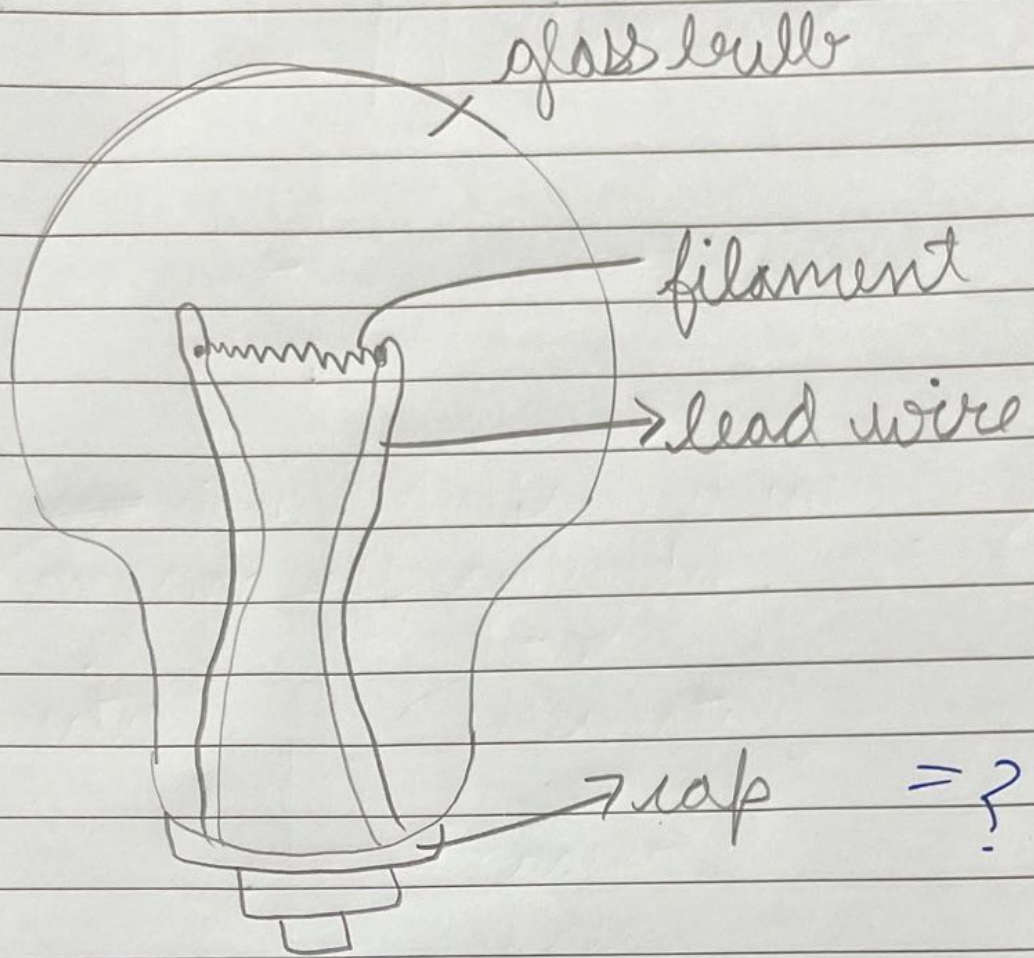 glass bulb
filament
lead wire
cap = ?